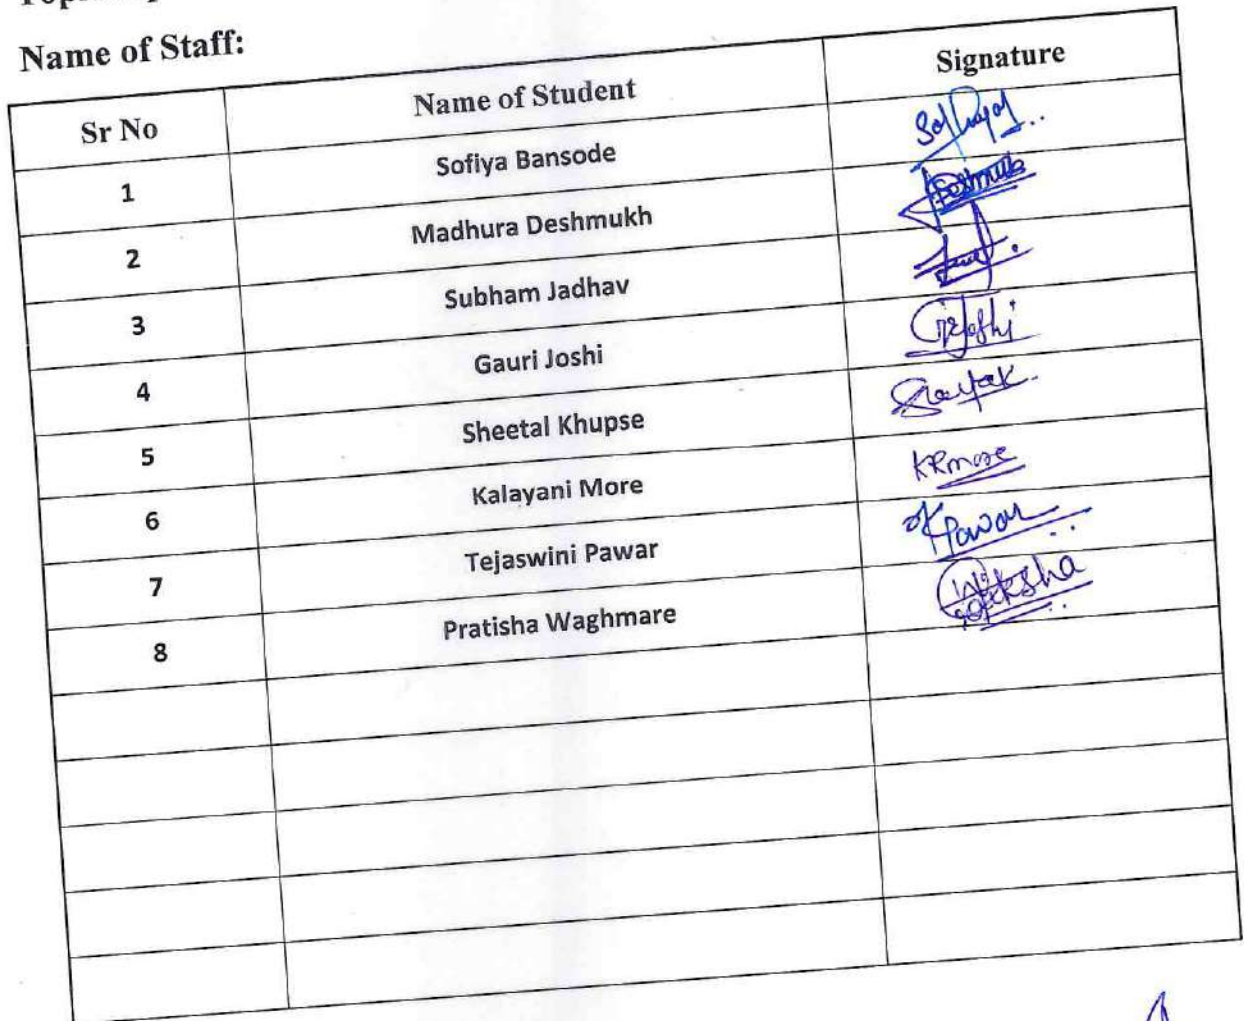 Name of Staff:
Sr No Name of Student Signature
1 Sofiya Bansode
2 Madhura Deshmukh
3 Subham Jadhav
4 Gauri Joshi
5 Sheetal Khupse
6 Kalayani More KRmore
7 Tejaswini Pawar
8 Pratisha Waghmare